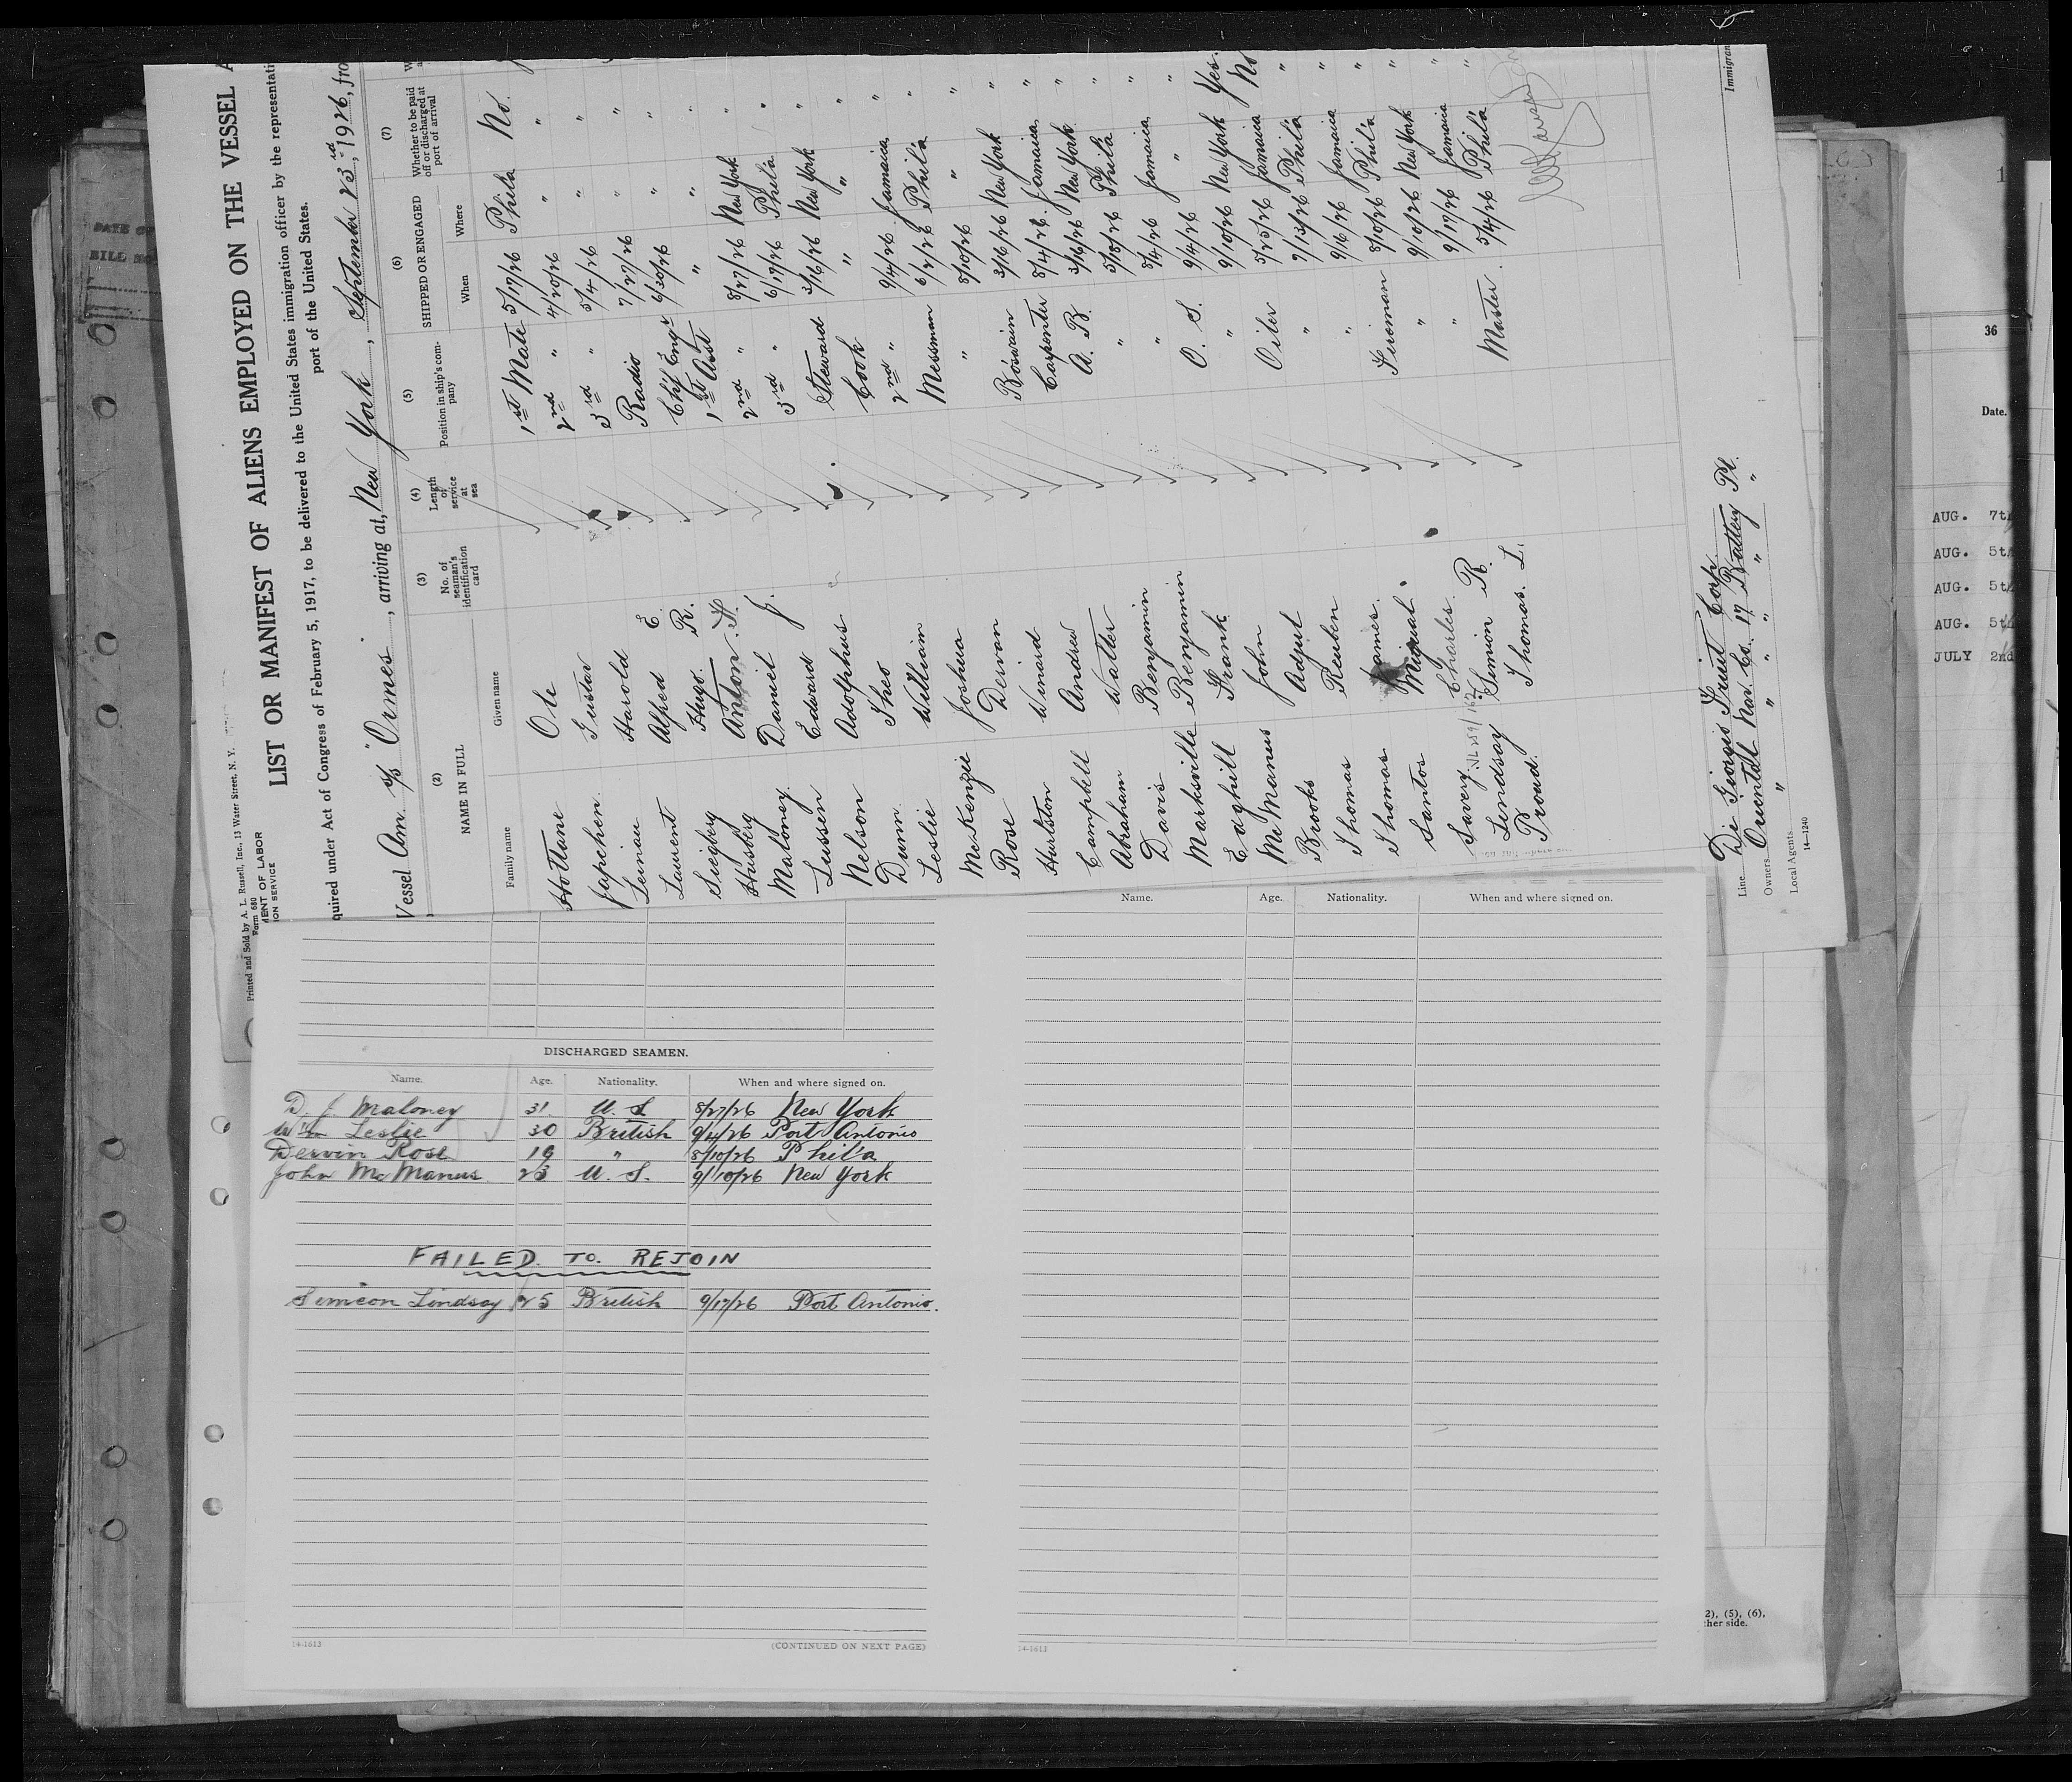 Printed and Sold by A. L. Russell, Inc., 13 Water Street, N. Y.
Form 680
MENT OF LABOR
ION SERVICE
LIST OR MANIFEST OF ALIENS EMPLOYED ON THE VESSEL A
quired under Act of Congress of February 5, 1917, to be delivered to the United States immigration officer by the representati
port of the United States.
Vessel Am. s/s "Ormes", arriving at, New York, September 23rd, 1926, fro
(2) NAME IN FULL
Family name Given name
(3) No. of seaman's identification card
(4) Length of service at sea
(5) Position in ship's company
(6) SHIPPED OR ENGAGED
When Where
(7) Whether to be paid off or discharged at port of arrival
Hottane Ole 1st Mate 5/17/26 Phila No.
Japphen Gustav 2nd " 4/20/26 " "
Harold 3rd " 5/4/26 " "
Laurent Alfred E. Radio 7/27/26 " "
Siegberg Hugo R. Chf Engr 6/30/26 " "
Husberg Anton H. 1st Asst " " "
Maloney Daniel J. 2nd " 8/27/26 New York "
Lussen Edward 3rd " 6/17/26 Phila "
Nelson Adolphus Steward 3/16/26 New York "
Dunn Theo Cook " " "
Leslie William 2nd " 9/4/26 Jamaica "
McKenzie Joshua Messman 6/2/26 Phila "
Rose Dervan " 8/10/26 " "
Hurlston Winard Boswain 3/16/26 New York "
Campbell Andrew Carpenter 8/4/26 Jamaica "
Abraham Walter A. B. 3/16/26 New York "
Davis Benjamin " 5/18/26 Phila "
Marksville Benjamin " 8/4/26 Jamaica "
Eaghill Frank O. S. 9/4/26 " "
McManus John " 9/10/26 New York Yes.
Brooks Adjut Oiler 5/25/26 Jamaica No
Thomas Reuben " 7/13/26 Phila "
Thomas James " 9/16/26 Jamaica "
Santos Miguel Fireman 8/10/26 Phila "
Savery Charles " 9/10/26 New York "
Lindsay Simion R. " 9/17/26 Jamaica "
Proud Thomas L. Master 5/4/26 Phila "
Line Di Giorgio Fruit Corp.
Owners Orientalt Nav. Co. 17 Battery Pl.
Local Agents " " " " " "
14—1240
Immigran
Name. Age. Nationality. When and where signed on.
DISCHARGED SEAMEN.
Name. Age. Nationality. When and where signed on.
D. J. Maloney 31. U. S 8/27/26 New York
Wm Leslie 30 British 9/4/26 Port Antonio
Dervin Rose 19 " 8/10/26 Phil'a
John McManus 23 U. S. 9/10/26 New York
FAILED TO REJOIN
Simeon Lindsay 25 British 9/17/26 Port Antonio.
14-1613
(CONTINUED ON NEXT PAGE)
14-1613
DATE OF
BILL NO
36
Date.
AUG. 7th
AUG. 5th
AUG. 5th
AUG. 5th
JULY 2nd
2), (5), (6),
ther side.